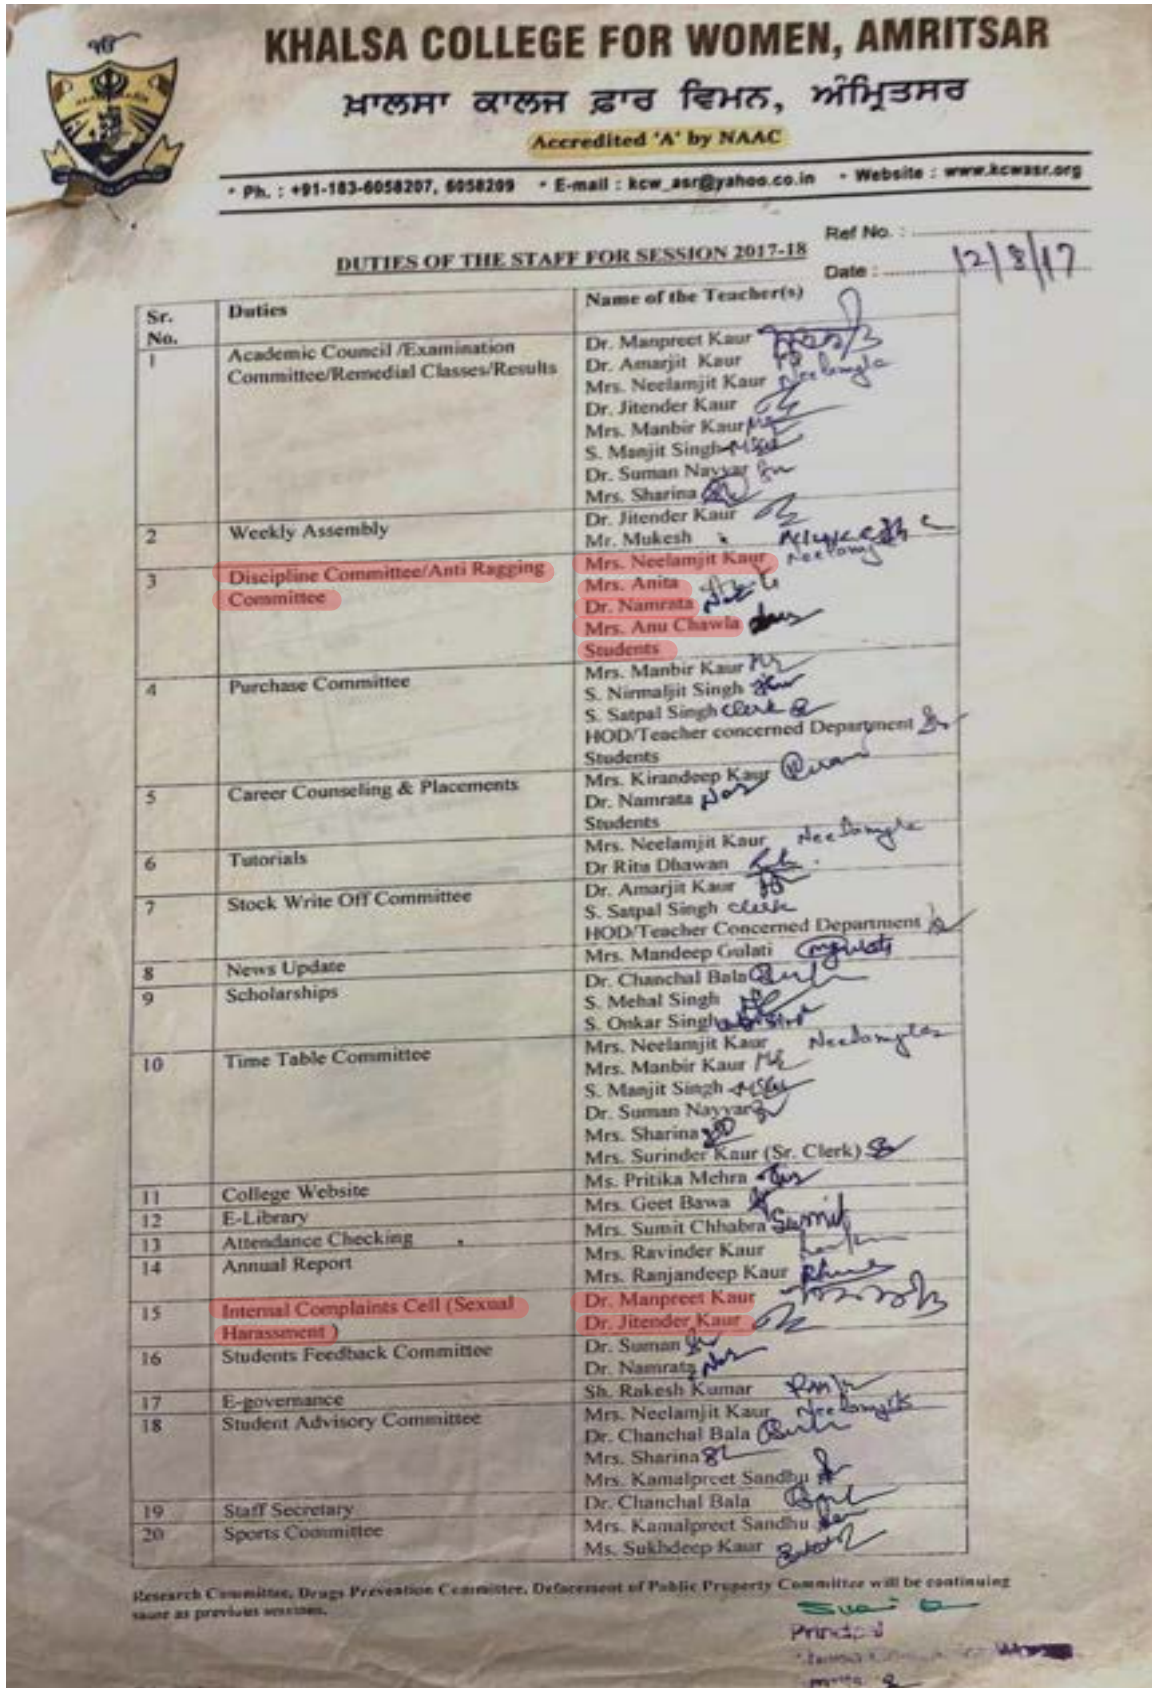 KHALSA COLLEGE FOR WOMEN, AMRITSAR
ਖ਼ਾਲਸਾ ਕਾਲਜ ਫ਼ਾਰ ਵਿਮਨ, ਅੰਮ੍ਰਿਤਸਰ
Accredited 'A' by NAAC
• Ph. : +91-183-6058207, 6058209 • E-mail : kcw_asr@yahoo.co.in • Website : www.kcwasr.org
Ref No. :
DUTIES OF THE STAFF FOR SESSION 2017-18
Date : 12/8/17
Sr. No. Duties Name of the Teacher(s)
1 Academic Council /Examination Dr. Manpreet Kaur
Committee/Remedial Classes/Results Dr. Amarjit Kaur
Mrs. Neelamjit Kaur
Dr. Jitender Kaur
Mrs. Manbir Kaur
S. Manjit Singh
Dr. Suman Nayyar
Mrs. Sharina
2 Weekly Assembly Dr. Jitender Kaur
Mr. Mukesh
3 Discipline Committee/Anti Ragging Mrs. Neelamjit Kaur
Committee Mrs. Anita
Dr. Namrata
Mrs. Anu Chawla
Students
4 Purchase Committee Mrs. Manbir Kaur
S. Nirmaljit Singh
S. Satpal Singh Clerk
HOD/Teacher concerned Department
Students
5 Career Counseling & Placements Mrs. Kirandeep Kaur
Dr. Namrata
Students
6 Tutorials Mrs. Neelamjit Kaur
Dr Rita Dhawan
7 Stock Write Off Committee Dr. Amarjit Kaur
S. Satpal Singh clerk
HOD/Teacher Concerned Department
8 News Update Mrs. Mandeep Gulati
9 Scholarships Dr. Chanchal Bala
S. Mehal Singh
S. Onkar Singh
10 Time Table Committee Mrs. Neelamjit Kaur
Mrs. Manbir Kaur
S. Manjit Singh
Dr. Suman Nayyar
Mrs. Sharina
Mrs. Surinder Kaur (Sr. Clerk)
11 College Website Ms. Pritika Mehra
12 E-Library Mrs. Geet Bawa
13 Attendance Checking Mrs. Sumit Chhabra Sumit
14 Annual Report Mrs. Ravinder Kaur
Mrs. Ranjandeep Kaur
15 Internal Complaints Cell (Sexual Dr. Manpreet Kaur
Harassment ) Dr. Jitender Kaur
16 Students Feedback Committee Dr. Suman
Dr. Namrata
17 E-governance Sh. Rakesh Kumar
18 Student Advisory Committee Mrs. Neelamjit Kaur
Dr. Chanchal Bala
Mrs. Sharina
Mrs. Kamalpreet Sandhu
19 Staff Secretary Dr. Chanchal Bala
20 Sports Committee Mrs. Kamalpreet Sandhu
Ms. Sukhdeep Kaur
Research Committee, Drugs Prevention Committee, Defacement of Public Property Committee will be continuing
same as previous sessions.
Principal